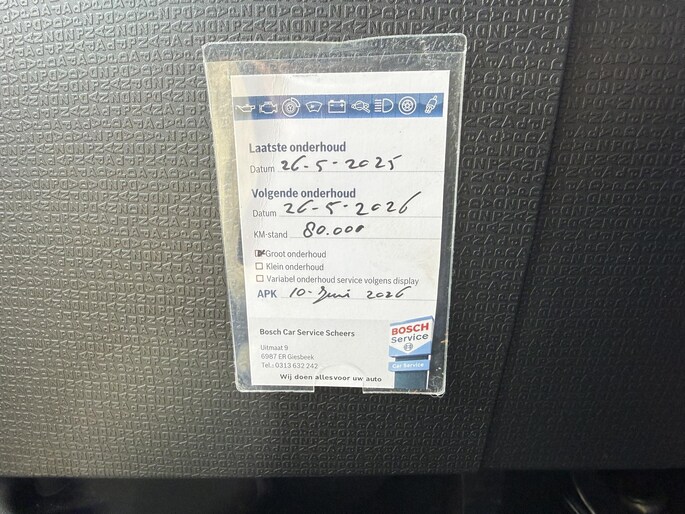 Laatste onderhoud
Datum 26-5-2025
Volgende onderhoud
Datum 26-5-2026
KM-stand 80.000
Groot onderhoud
Klein onderhoud
Variabel onderhoud service volgens display
APK 10-Juni 2026
Bosch Car Service Scheers
Uitmaat 9
6987 ER Giesbeek
Tel.: 0313 632 242
Wij doen alles voor uw auto
BOSCH
Service
Car Service